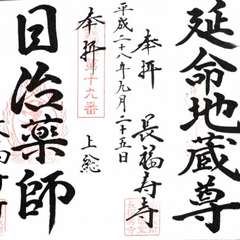 延命地蔵尊
奉拝
長福寿寺
平成二十八年九月二十五日
奉拝
上総
目治薬師